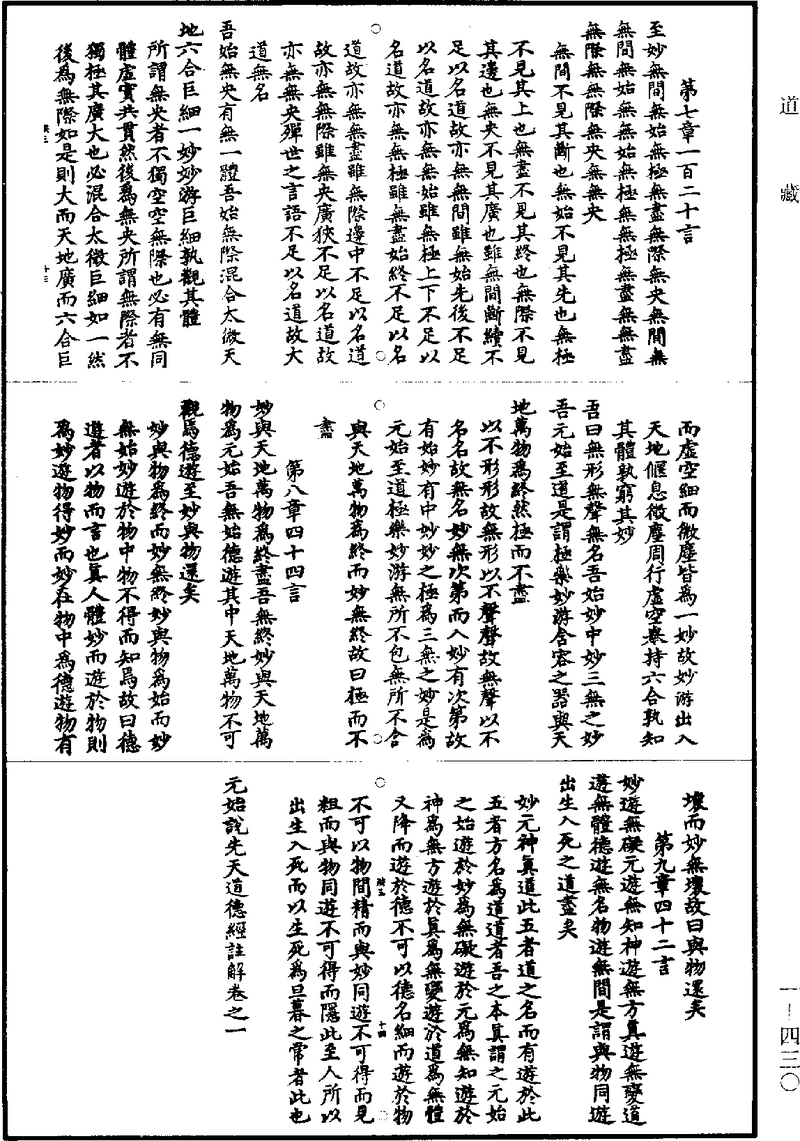 道藏
第七章一百二十言
至妙無間無始無極無盡無際無央無間無
無間無始無無始無極無無極無盡無無盡
無際無無際無央無無央
無間不見其斷也無始不見其先也無極
不見其上也無盡不見其終也無際不見
其邊也無央不見其廣也雖無間斷續不
足以名道故亦無無間雖無始先後不足
以名道故亦無無始雖無極上下不足以
名道故亦無無極雖無盡始終不足以名
道故亦無無盡雖無際邊中不足以名道
故亦無無際雖無央廣狹不足以名道故
亦無無央殫世之言語不足以名道故大
道無名
吾始無央有無一體吾始無際混合太微天
地六合巨細一妙妙游巨細孰觀其體
所謂無央者不獨空空無際也必有無同
體虛實共貫然後為無央所謂無際者不
獨極其廣大也必混合太微巨細如一然
後為無際如是則大而天地廣而六合巨
而虛空細而微塵皆為一妙故妙游出入
天地偃息微塵周行虛空秦持六合孰知
其體孰窮其妙
吾曰無形無聲無名吾始妙中妙三無之妙
吾元始至道是謂極樂妙游含容之器與天
地萬物為終然極而不盡
以不形形故無形以不聲聲故無聲以不
名名故無名妙無次第而入妙有次第故
有始妙有中妙妙之極為三無之妙是為
元始至道極樂妙游無所不包無所不含
與天地萬物為終而妙無終故曰極而不
盡
第八章四十四言
妙與天地萬物為終盡吾無終妙與天地萬
物為元始吾無始德遊其中天地萬物不可
觀焉德遊至妙與物還矣
妙與物為終而妙無終妙與物為始而妙
無始妙遊於物中物不得而知焉故曰德
遊者以物而言也真人體妙而遊於物則
為妙遊物得妙而妙在物中為德遊物有
壞而妙無壞故曰與物還矣
第九章四十二言
妙遊無礙元遊無知神遊無方真遊無變道
遊無體德遊無名物遊無間是謂與物同遊
出生入死之道盡矣
妙元神真道此五者道之名而有遊於此
五者方名為道道者吾之本真謂之元始
之始遊於妙為無礙遊於元為無知遊於
神為無方遊於真為無變遊於道為無體
又降而遊於德不可以德名細而遊於物
不可以物間精而與妙同遊不可得而見
粗而與物同遊不可得而隱此至人所以
出生入死而以生死為旦暮之常者此也
元始說先天道德經註解卷之一
一－四三〇